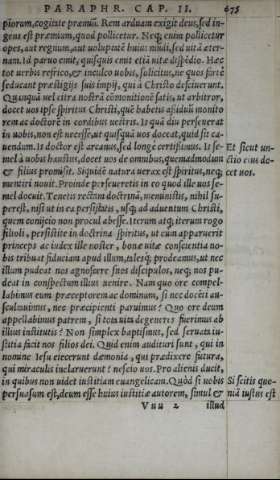 PARAPHR. CAP. II. 675
piorum, cogitate præmiū. Rem arduam exigit deus, sed in-
gens est præmium, quod pollicetur. Neq; enim pollicetur
opes, aut regnum, aut uoluptatē huius mūdi, sed uitā æter-
nam. Id paruo emit, quisquis emit etiā uitæ dispēdio. Hæc
tot uerbis refrico, & inculco uobis, solicitus, ne quos fortè
seducant præstigijs suis impij, qui à Christo desciuerunt.
Quanquā uel citra nostrā cōmonitionē satis, ut arbitror,
docet uos ipse spiritus Christi, quē habetis assiduū monito
rem ac doctorē in cordibus uestris. Is quā diu perseuerat
in uobis, non est necesse, ut quisquā uos doceat, quid sit ca-
uendum. Is doctor est arcanus, sed longè certissimus. Is se- Et sicut un-
mel à uobis haustus, docet uos de omnibus, quemadmodum ctio eius do-
& filius promisit. Siquidē natura uerax est spiritus, neq; cet uos.
mentiri nouit. Proinde perseueretis in eo quod ille uos se-
mel docuit. Tenetis rectam doctrinā, meministis, nihil su-
perest, nisi ut in ea persistatis, usq; ad aduentum Christi,
quem confido non procul abesse. Iterum atq; iterum rogo
filioli, persistite in doctrina spiritus, ut cum apparuerit
princeps ac iudex ille noster, bonæ uitæ conscientia no-
bis tribuat fiduciam apud illum, talesq; prodeamus, ut nec
illum pudeat nos agnoscere suos discipulos, neq; nos pu-
deat in conspectum illius uenire. Nam quo ore compel-
labimus eum præceptorem ac dominum, si nec docēti au-
scultauimus, nec præcipienti paruimus? Quo ore deum
appellabimus patrem, si tota uita degeneres fuerimus ab
illius institutis? Non simplex baptismus, sed seruata iu-
stitia facit nos filios dei. Quid enim audituri sunt, qui in
nomine Iesu eiecerunt dæmonia, qui prædixere futura,
qui miraculis inclaruerunt? nescio uos. Pro alienis ducit,
in quibus non uidet iustitiam euangelicam. Quòd si uobis Si scitis quo-
persuasum est, deum esse huius iustitiæ autorem, simul & niā iustus est
Vuu 2 illud